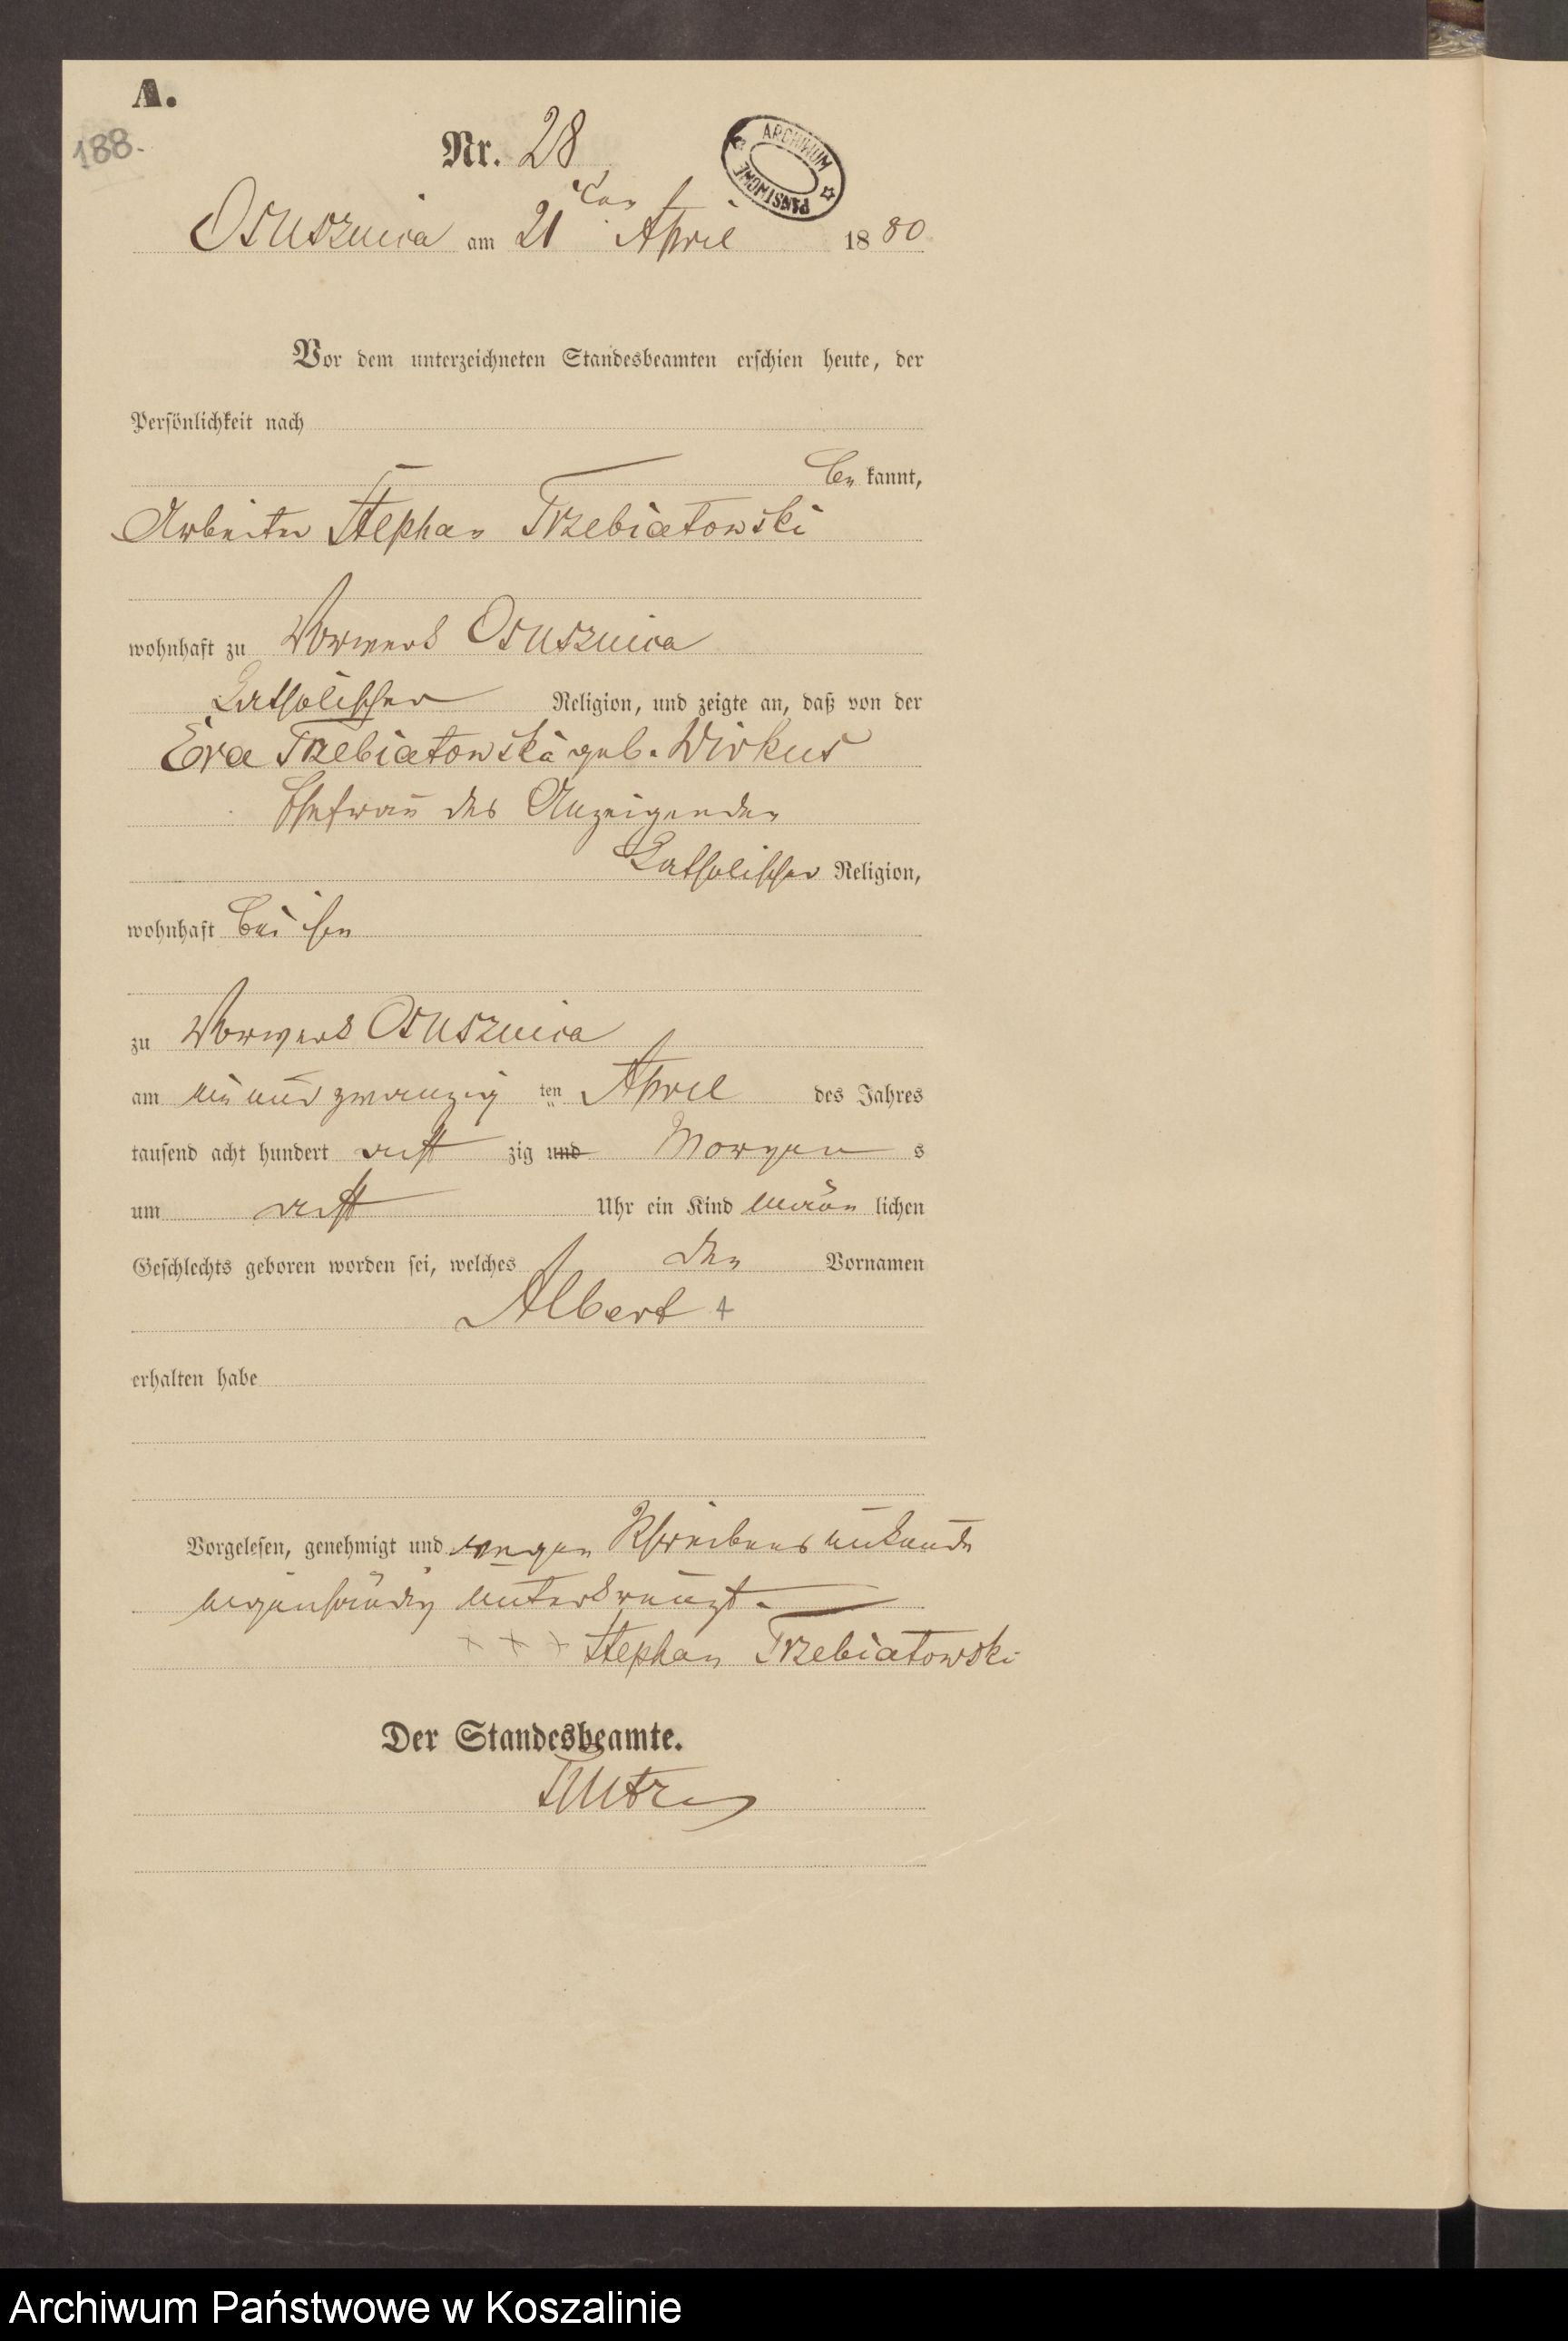 A.
188.
Nr. 28
ARCHIWUM PAŃSTWOWE
Osusznica am 21ten April 1880
Vor dem unterzeichneten Standesbeamten erschien heute, der
Persönlichkeit nach
be kannt,
Arbeiter Stephan Trzebiatowski
wohnhaft zu Vorwerk Osusznica
katholischer Religion, und zeigte an, daß von der
Eva Trzebiatowska geb. Wirkus
Ehefrau des Anzeigenden
katholischer Religion,
wohnhaft bei ihm
zu Vorwerk Osusznica
am ein und zwanzig ten April des Jahres
tausend acht hundert acht zig und Morgen s
um acht Uhr ein Kind männ lichen
Geschlechts geboren worden sei, welches den Vornamen
Albert +
erhalten habe
Vorgelesen, genehmigt und wegen Schreibens unkunde
eigenhändig unterkreuzt.
+ + + Stephan Trzebiatowski
Der Standesbeamte.
Archiwum Państwowe w Koszalinie